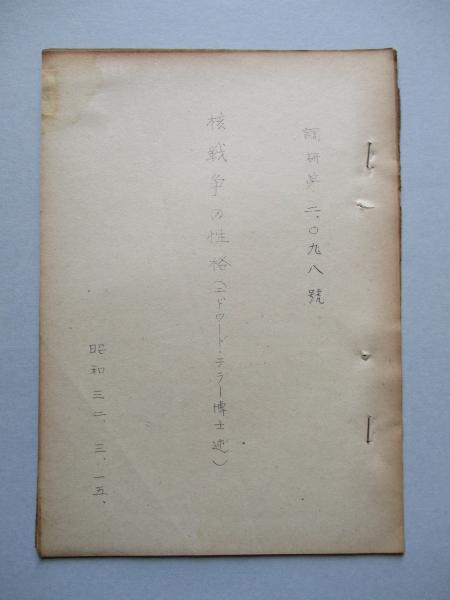 調研第二、〇九八號
核戦争の性格(エドワード・テラー博士述)
昭和三二、三、一五、